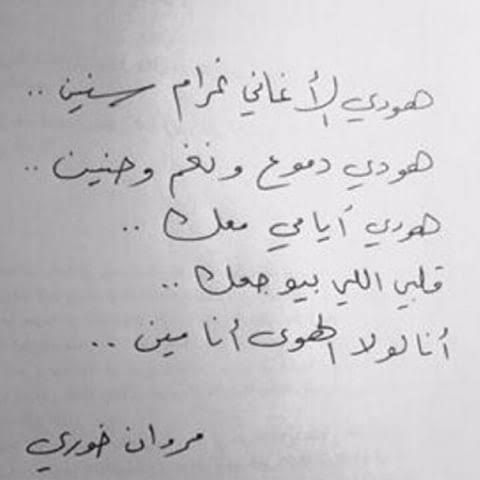 هودي الأغاني غرام سنين ..
هودي دموع ونغم وحنين ..
هودي أيامي معك ..
قلبي اللي بيوجعك ..
أنا لولا الهوى أنا مين ..
مروان خوري